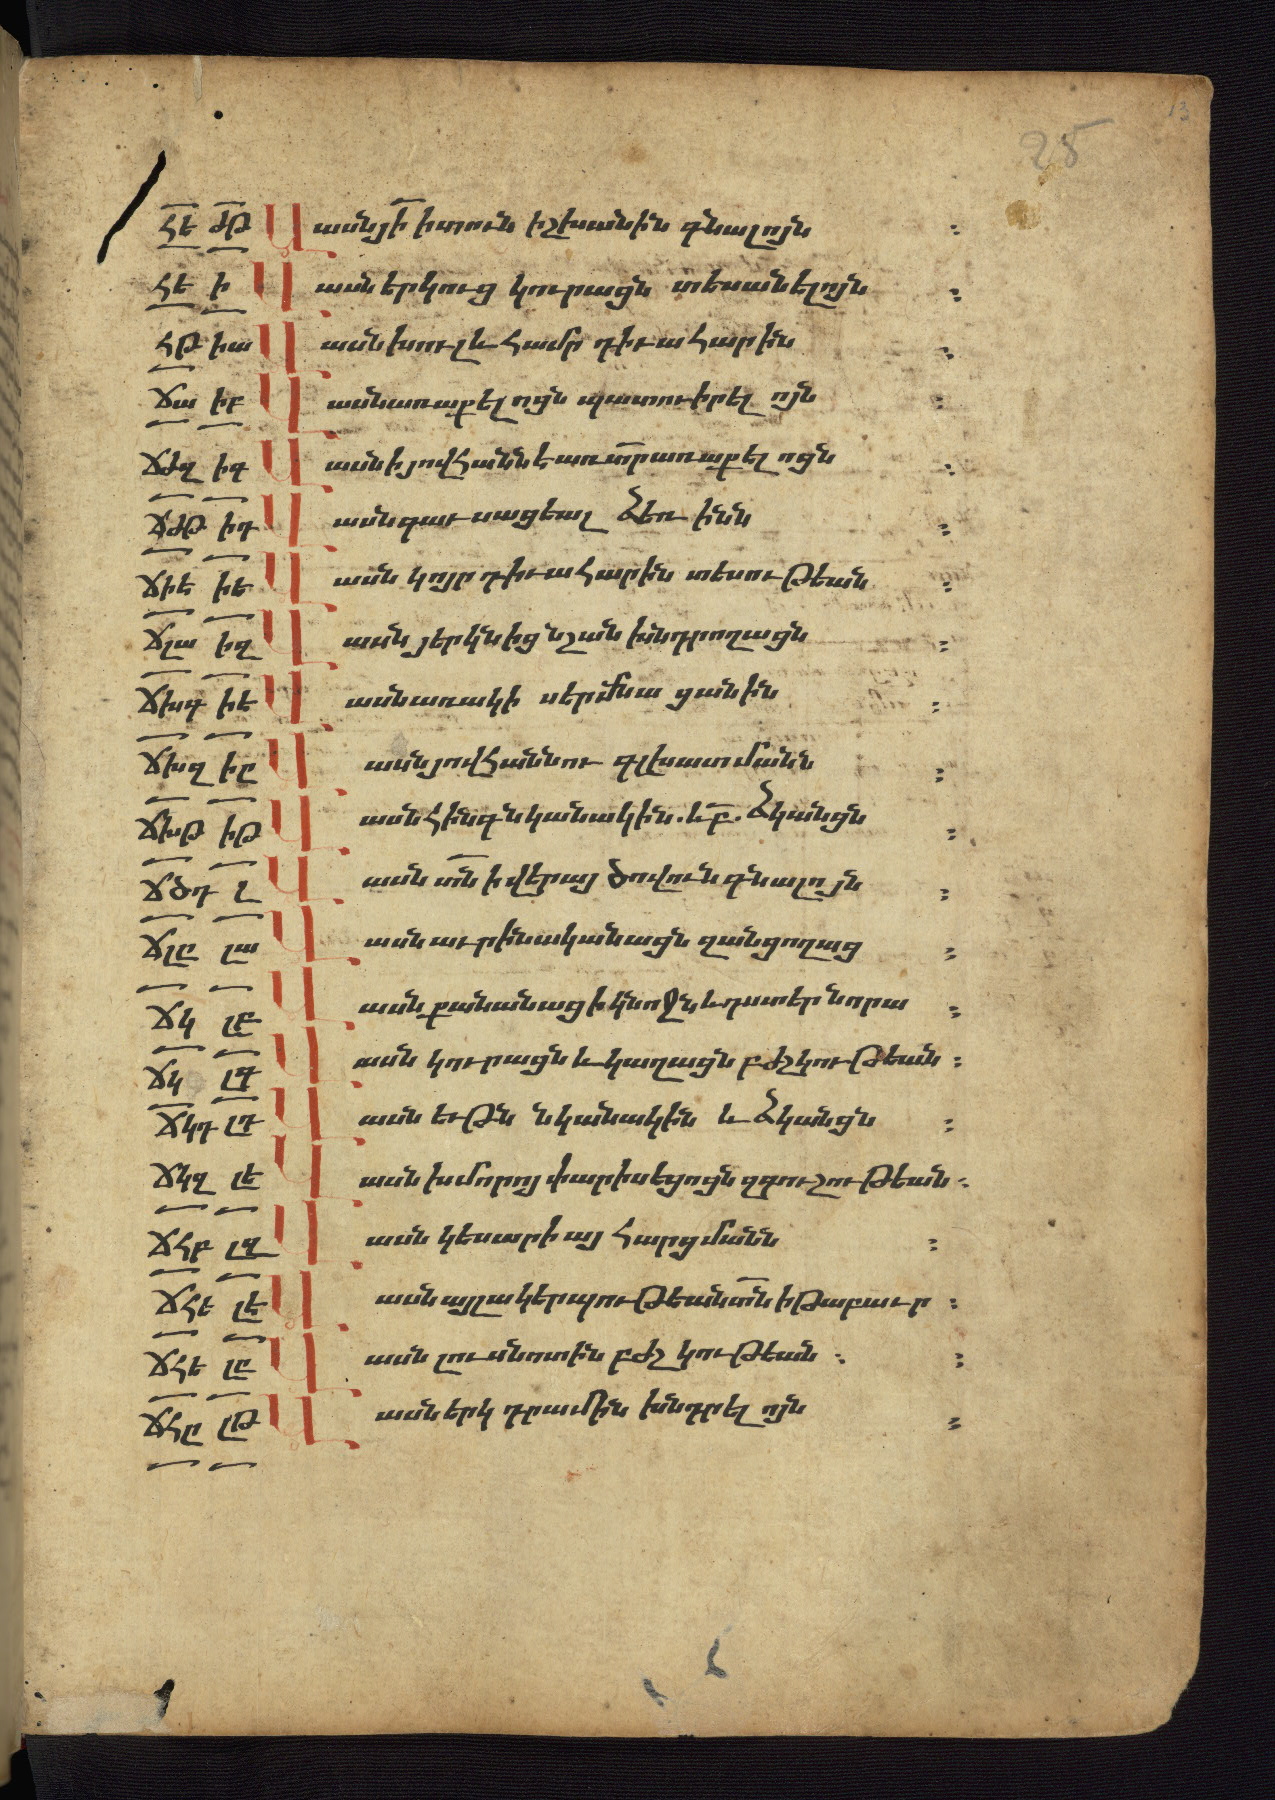 13
25
ՀԵ ԺԹ Վասն յի ի տուն իշխանին գնալոյն :
ՀԵ Ի Վասն երկուց կուրացն տեսանելոյն :
ՀԹ ԻԱ Վասն խուլ և համր դիւահարին :
ՃԱ ԻԲ Վասն առաքելոցն պատուիրելոյն :
ՃԺԶ ԻԳ Վասն ի յովհաննէ առ տր առաքելոցն :
ՃԺԹ ԻԴ Վասն գաւսացեալ ձեռինն :
ՃԻԵ ԻԵ Վասն կոյր դիւահարին տեսութեան :
ՃԼԱ ԻԶ Վասն յերկնից նշան խնդրողացն :
ՃԽԳ ԻԷ Վասն առակի սերմնացանին :
ՃԽԶ ԻԸ Վասն յովհաննու գլխատմանն :
ՃԽԹ ԻԹ Վասն հինգ նկանակին. և բ. ձկանցն :
ՃԾԴ Լ Վասն տն ի վերայ ծովուն գնալոյն :
ՃԼԸ ԼԱ Վասն աւրինականացն զանցողաց :
ՃԿ ԼԲ Վասն քանանացի կնոջն և դստեր նորա :
ՃԿ ԼԳ Վասն կուրացն և կաղացն բժշկութեան :
ՃԿԴ ԼԴ Վասն եւթն նկանակին և ձկանցն :
ՃԿԶ ԼԵ Վասն խմորոյ փարիսեցոցն զգուշութեան :
ՃՀԲ ԼԶ Վասն կեսարիայ հարցմանն :
ՃՀԵ ԼԷ Վասն այլակերպութեան տն ի թաբաւր :
ՃՀԵ ԼԸ Վասն լուսնոտին բժշկութեան : :
ՃՀԸ ԼԹ Վասն երկդրամին խնդրելոյն :